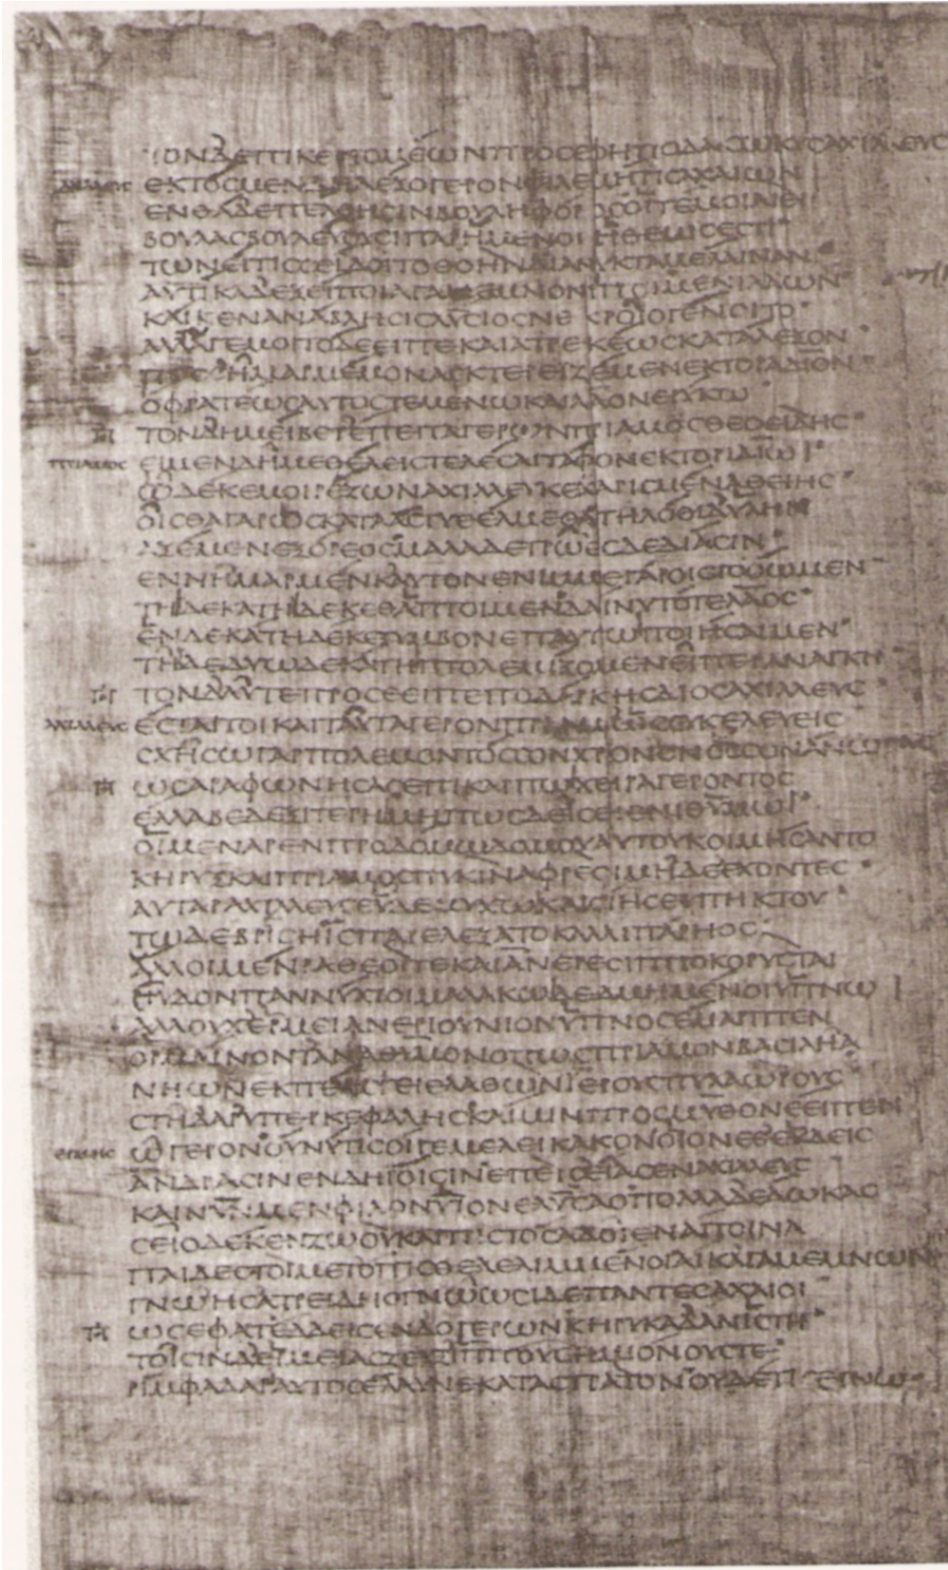 ΤΟΝΔΕΠΙΚΕΡΤΟΜΕΩΝΠΡΟCΕΦΗΠΟΔΑCΩΚΥCΑΧΙΛΛΕΥC
ΑΧΙΛΛΕΥC ΕΚΤΟCΜΕΝΔΗΛΕΞΟΓΕΡΟΝΦΙΛΕΜΗΤΙCΑΧΑΙΩΝ
ΕΝΘΑΔΕΠΕΛΘΗCΙΝΒΟΥΛΗΦΟΡΟCΟΙΤΕΜΟΙΑΙΕΙ
ΒΟΥΛΑCΒΟΥΛΕΥΟΥCΙΠΑΡΗΜΕΝΟΙΗΘΕΜΙCΕCΤΙ
ΤΩΝΕΙΤΙCCΕΙΔΟΙΤΟΘΟΗΝΔΙΑΝΥΚΤΑΜΕΛΑΙΝΑΝ
ΑΥΤΙΚΑΔΕΞΕΙΠΟΙΑΓΑΜΕΜΝΟΝΙΠΟΙΜΕΝΙΛΑΩΝ
ΚΑΙΚΕΝΑΝΑΒΛΗCΙCΛΥCΙΟCΝΕΚΡΟΙΟΓΕΝΟΙΤΟ
ΑΛΛΑΓΕΜΟΙΤΟΔΕΕΙΠΕΚΑΙΑΤΡΕΚΕΩCΚΑΤΑΛΕΞΟΝ
ΠΟCCΗΜΑΡΜΕΜΟΝΑCΚΤΕΡΕΙΖΕΜΕΝΕΚΤΟΡΑΔΙΟΝ
ΟΦΡΑΤΕΩCΑΥΤΟCΤΕΜΕΝΩΚΑΙΛΑΟΝΕΡΥΚΩ
ΤΟΝΔΗΜΕΙΒΕΤΕΠΕΙΤΑΓΕΡΩΝΠΡΙΑΜΟCΘΕΟΕΙΔΗC
ΠΡΙΑΜΟC ΕΙΜΕΝΔΗΜΕΘΕΛΕΙCΤΕΛΕCΑΙΤΑΦΟΝΕΚΤΟΡΙΔΙΩΙ
ΩΔΕΚΕΜΟΙΡΕΖΩΝΑΧΙΛΛΕΥΚΕΧΑΡΙCΜΕΝΑΘΕΙΗC
ΟΙCΘΑΓΑΡΩCΚΑΤΑΑCΤΥΕΕΛΜΕΘΑΤΗΛΟΘΙΔΥΛΗ
ΑΞΕΜΕΝΕΞΟΡΕΟCΜΑΛΑΔΕΤΡΩΕCΔΕΔΙΑCΙΝ
ΕΝΝΗΜΑΡΜΕΝΚΑΥΤΟΝΕΝΙΜΜΕΓΑΡΟΙCΓΟΟΩΜΕΝ
ΤΗΙΔΕΚΑΤΗΙΔΕΚΕΘΑΠΤΟΙΜΕΝΔΑΙΝΥΤΟΤΕΛΑΟC
ΕΝΔΕΚΑΤΗΔΕΚΕΤΥΜΒΟΝΕΠΑΥΤΩΠΟΙΗCΑΙΜΕΝ
ΤΗΙΔΕΔΥΩΔΕΚΑΤΗΠΤΟΛΕΜΙΞΟΜΕΝΕΙΠΕΡΑΝΑΓΚΗ
ΤΟΝΔΑΥΤΕΠΡΟCΕΕΙΠΕΠΟΔΑΡΚΗCΔΙΟCΑΧΙΛΛΕΥC
ΑΧΙΛΛΕΥC ΕCΤΑΙΤΟΙΚΑΙΤΑΥΤΑΓΕΡΟΝΠΡΙΑΜΩCCΥΚΕΛΕΥΕΙC
CΧΗCΩΓΑΡΠΟΛΕΜΟΝΤΟCCΟΝΧΡΟΝΟΝΟCCΟΝΑΝΩΓΑC
ΩCΑΡΑΦΩΝΗCΑCΕΠΙΚΑΡΠΩΧΕΙΡΑΓΕΡΟΝΤΟC
ΕΛΛΑΒΕΔΕΞΙΤΕΡΗΜΗΠΩCΔΕΙCΕΙΕΝΙΘΥΜΩΙ
ΟΙΜΕΝΑΡΕΝΠΡΟΔΟΜΩΔΟΜΟΥΑΥΤΟΥΚΟΙΜΗCΑΝΤΟ
ΚΗΡΥΞΚΑΙΠΡΙΑΜΟCΠΥΚΙΝΑΦΡΕCΙΜΗΔΕΕΧΟΝΤΕC
ΑΥΤΑΡΑΧΙΛΛΕΥCΕΥΔΕΜΥΧΩΚΛΙCΙΗCΕΥΠΗΚΤΟΥ
ΤΩΔΕΒΡΙCΗΙCΠΑΡΕΛΕΞΑΤΟΚΑΛΛΙΠΑΡΗΟC
ΑΛΛΟΙΜΕΝΡΑΘΕΟΙΤΕΚΑΙΑΝΕΡΕCΙΠΠΟΚΟΡΥCΤΑΙ
ΕΥΔΟΝΠΑΝΝΥΧΙΟΙΜΑΛΑΚΩΔΕΔΜΗΜΕΝΟΙΥΠΝΩΙ
ΑΛΛΟΥΧΕΡΜΕΙΑΝΕΡΙΟΥΝΙΟΝΥΠΝΟCΕΜΑΡΠΤΕΝ
ΟΡΜΑΙΝΟΝΤΑΝΑΘΥΜΟΝΟΠΩCΠΡΙΑΜΟΝΒΑCΙΛΗΑ
ΝΗΩΝΕΚΠΕΜΨΕΙΕΛΑΘΩΝΙΕΡΟΥCΠΥΛΑΩΡΟΥC
CΤΗΔΑΡΥΠΕΡΚΕΦΑΛΗCΚΑΙΜΙΝΠΡΟCΜΥΘΟΝΕΕΙΠΕΝ
ΕΡΜΗC ΩΓΕΡΟΝΟΥΝΥΤΙCΟΙΓΕΜΕΛΕΙΚΑΚΟΝΟΙΟΝΕΘΕΥΔΕΙC
ΑΝΔΡΑCΙΝΕΝΔΗΙΟΙCΙΝΕΠΕΙCΕΙΑCΕΝΑΧΙΛΛΕΥC
ΚΑΙΝΥΝΜΕΝΦΙΛΟΝΥΙΟΝΕΛΥCΑΟΠΟΛΛΑΔΕΔΩΚΑC
CΕΙΟΔΕΚΕΝΖΩΟΥΚΑΙΤΡΙCΤΟCΑΔΟΙΕΝΑΠΟΙΝΑ
ΠΑΙΔΕCΤΟΙΜΕΤΟΠΙCΘΕΛΕΛΕΙΜΜΕΝΟΙΑΙΚΑΓΑΜΕΜΝΩΝ
ΓΝΩΗCΑΤΡΕΙΔΗCΓΝΩΩCΙΔΕΠΑΝΤΕCΑΧΑΙΟΙ
ΩCΕΦΑΤΕΔΔΕΙCΕΝΔΟΓΕΡΩΝΚΗΡΥΚΑΔΑΝΙCΤΗ
ΤΟΙCΙΝΔΕΡΜΕΙΑCΖΕΥΞΙΠΠΟΥCΗΜΙΟΝΟΥCΤΕ
ΡΙΜΦΑΔΑΡΑΥΤΟCΕΛΑΥΝΕΚΑΤΑCΤΡΑΤΟΝΟΥΔΕΤΙCΕΓΝΩ